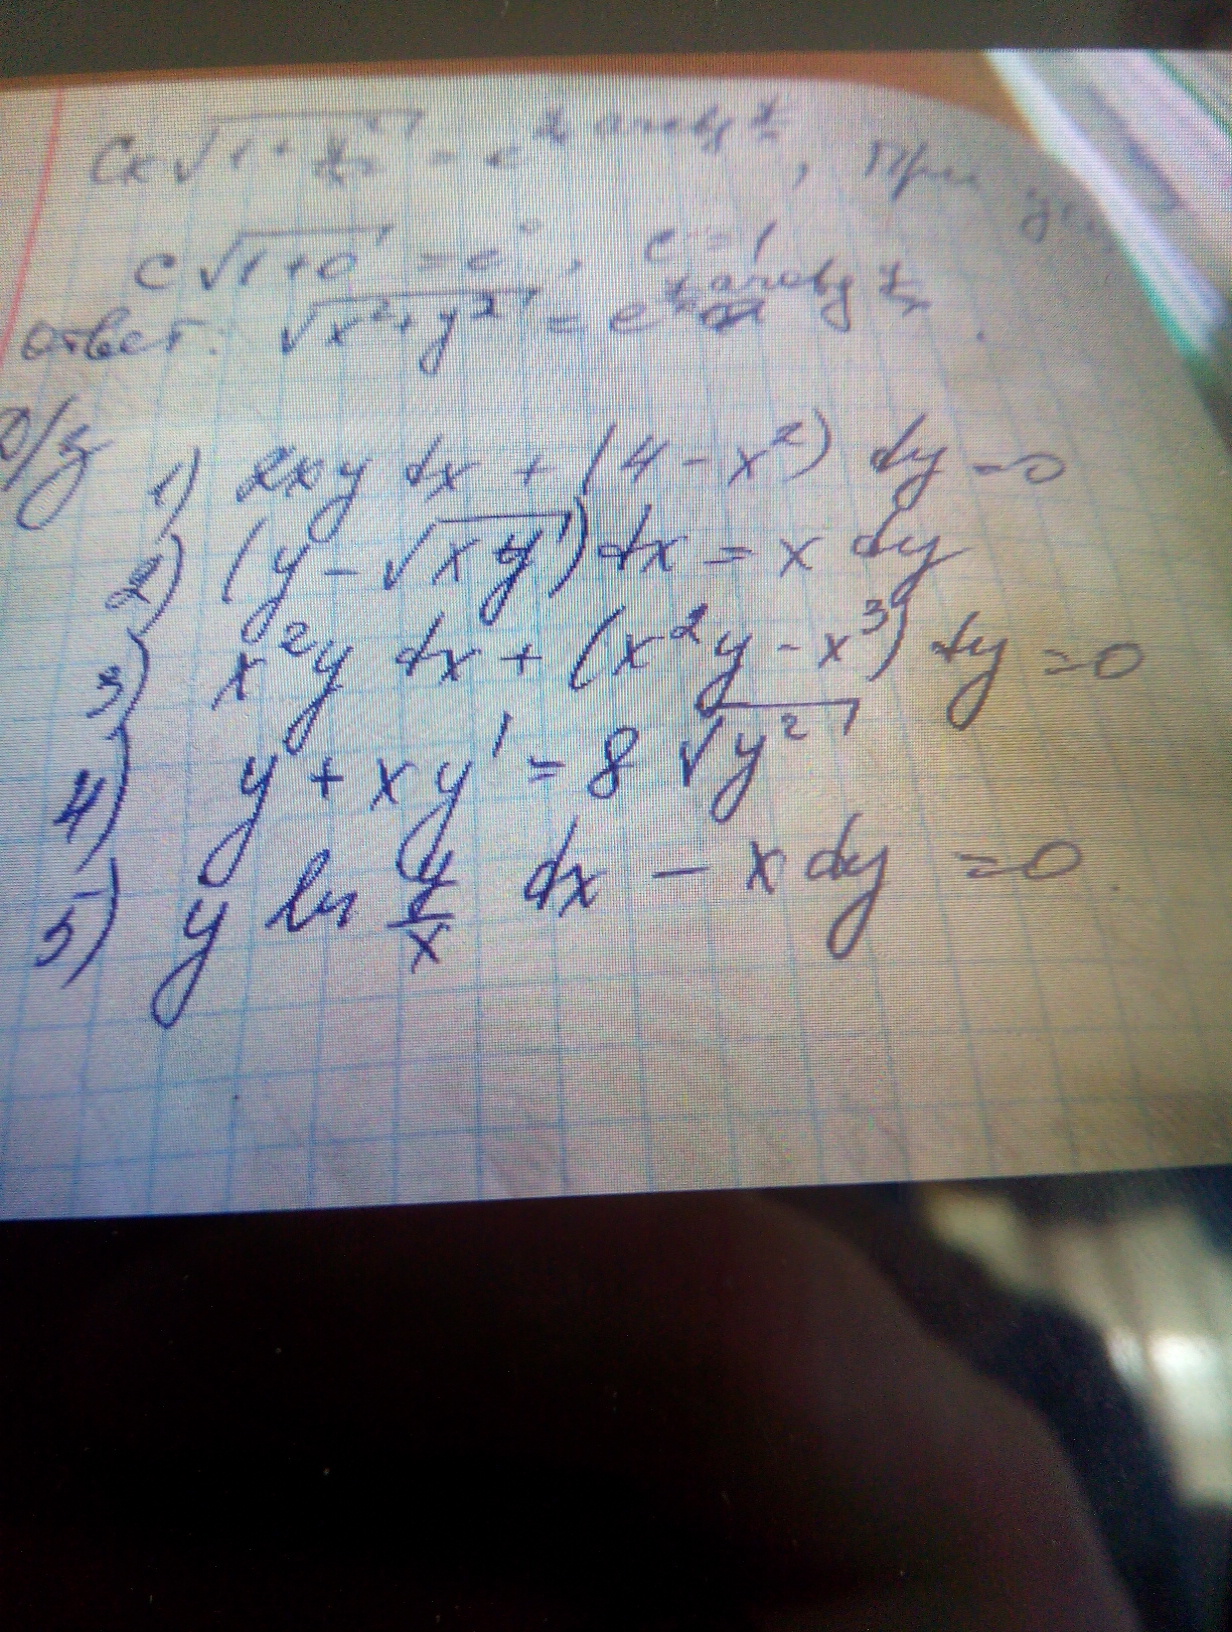 Cx√(1+ = e arctg , При
c√(1+0) = e⁰, c = 1
Ответ: √(x²+y²) = e arctg .
Д/з 1) 2xy dx + (4 - x²) dy = 0
2) (y - √(xy)) dx = x dy
3) x²y dx + (x²y - x³) dy = 0
4) y + xy' = 8 √(y²)
5) y ln y/x dx - x dy = 0.